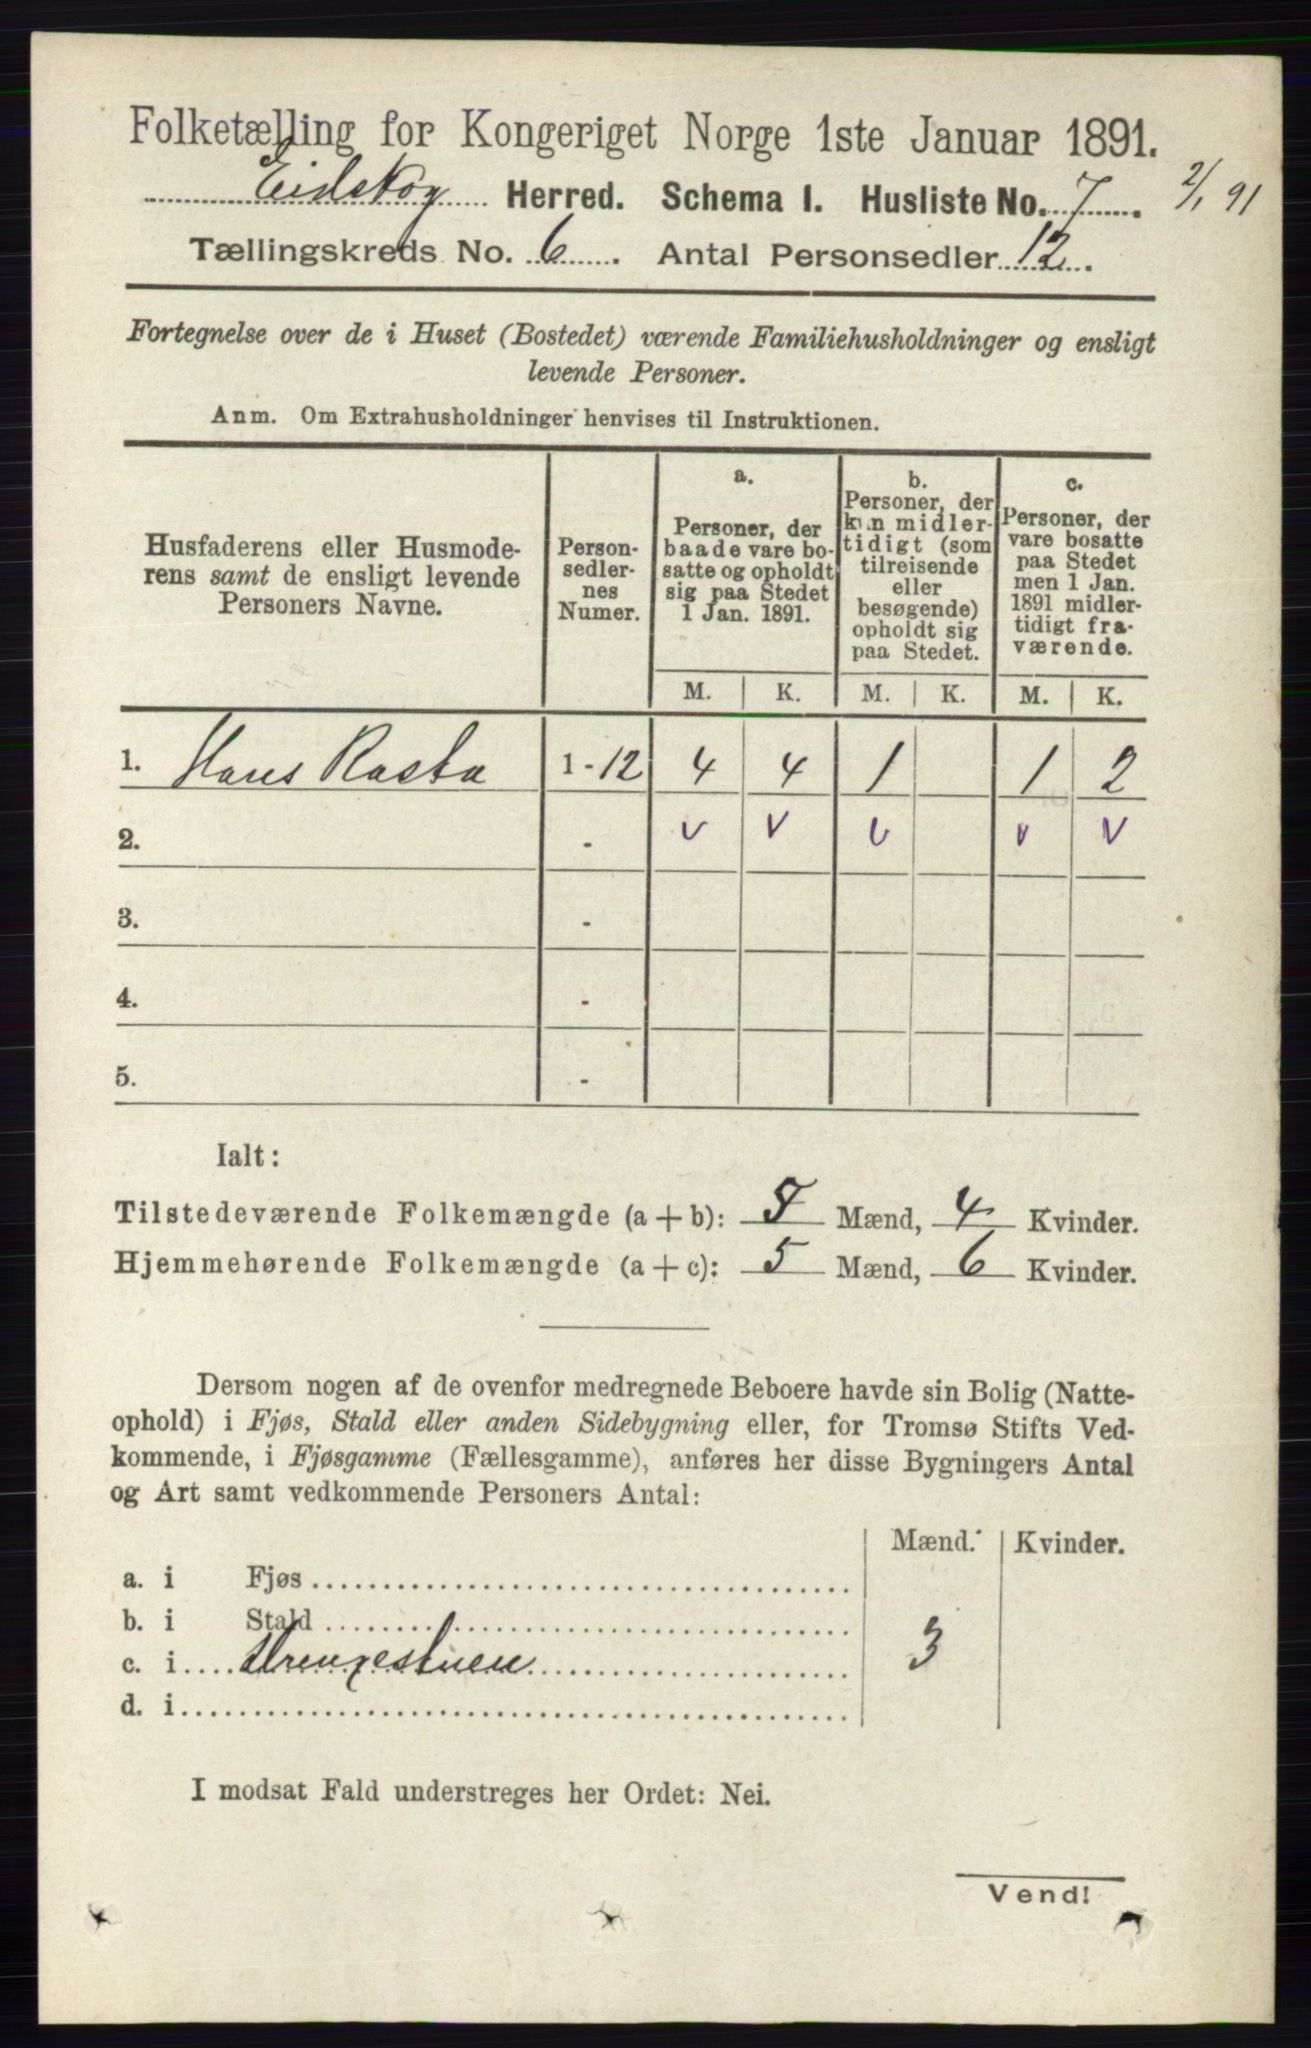 Folketælling for Kongeriget Norge 1ste Januar 1891.
Eidskog Herred. Schema I. Husliste No. 7. 2/1 91
Tællingskreds No. 6. Antal Personsedler 12.
Fortegnelse over de i Huset (Bostedet) værende Familiehusholdninger og ensligt
levende Personer.
Anm. Om Extrahusholdninger henvises til Instruktionen.
Husfaderens eller Husmode-
rens samt de ensligt levende
Personers Navne.
Person-
sedler-
nes
Numer.
a.
Personer, der
baade vare bo-
satte og opholdt
sig paa Stedet
1 Jan. 1891.
b.
Personer, der
kun midler-
tidigt (som
tilreisende
eller
besøgende)
opholdt sig
paa Stedet.
c.
Personer, der
vare bosatte
paa Stedet
men 1 Jan.
1891 midler-
tidigt fra-
værende.
M. K. M. K. M. K.
1. Hans Rasta 1 - 12 4 4 1 1 2
2. - v v v v v
3. -
4. -
5. -
Ialt:
Tilstedeværende Folkemængde (a + b): 5 Mænd, 4 Kvinder.
Hjemmehørende Folkemængde (a + c): 5 Mænd, 6 Kvinder.
Dersom nogen af de ovenfor medregnede Beboere havde sin Bolig (Natte-
ophold) i Fjøs, Stald eller anden Sidebygning eller, for Tromsø Stifts Ved-
kommende, i Fjøsgamme (Fællesgamme), anføres her disse Bygningers Antal
og Art samt vedkommende Personers Antal:
Mænd. Kvinder.
a. i Fjøs
b. i Stald
c. i Drengestuen 3
d. i
I modsat Fald understreges her Ordet: Nei.
Vend!